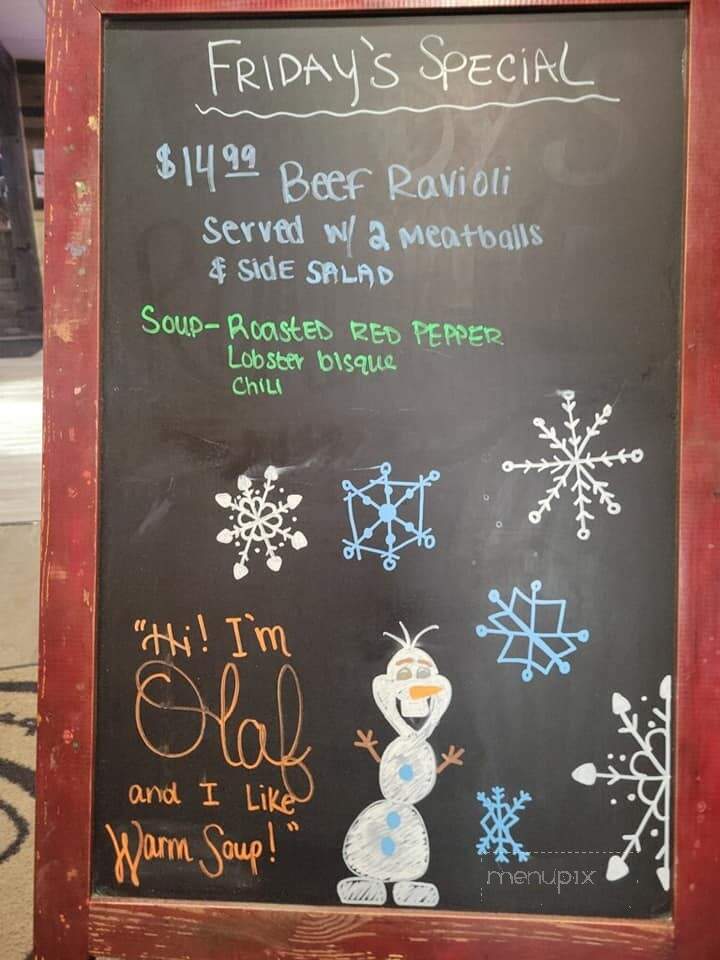 FRIDAY'S SPECIAL
$14.99 Beef Ravioli
Served w/ 2 Meatballs
& Side SALAD
Soup- Roasted RED PEPPER
Lobster bisque
Chili
"Hi! I'm
Olaf
and I Like
Warm Soup!"
menupix